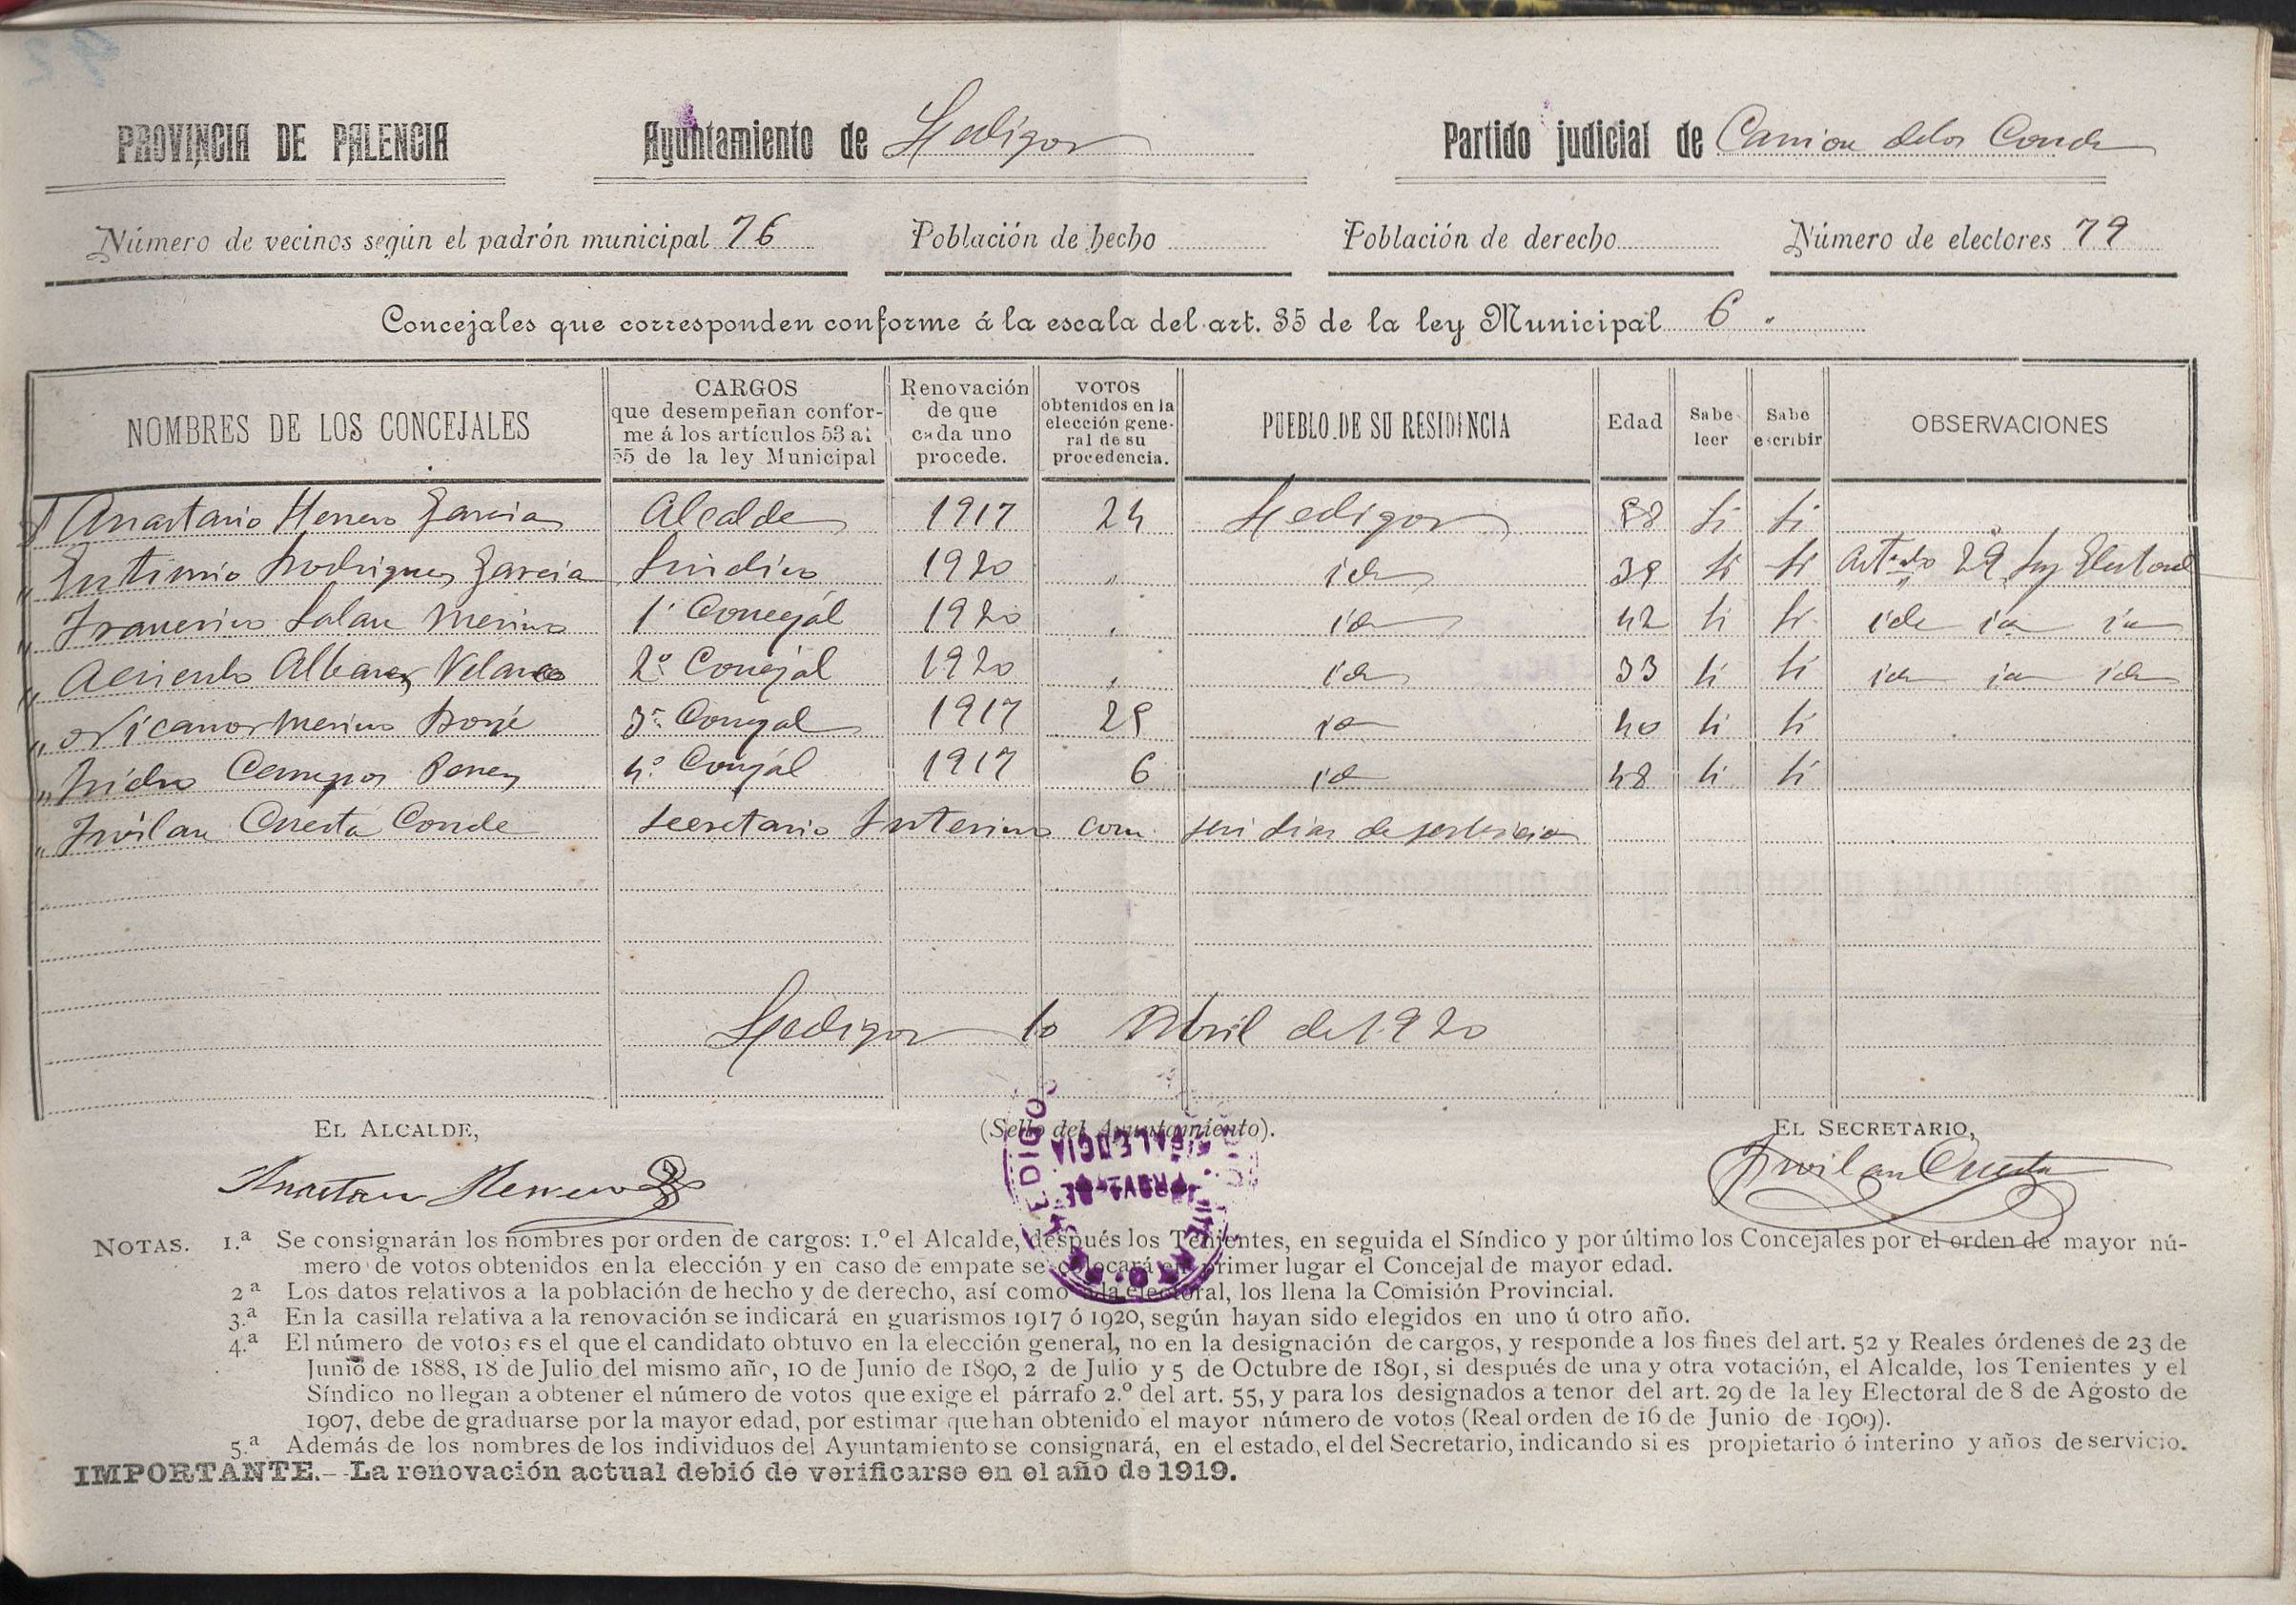 PROVINCIA DE PALENCIA Ayuntamiento de Ledigos Partido judicial de Carrion delos Conde
Número de vecinos según el padrón municipal 76 Población de hecho Población de derecho Número de electores 79
Concejales que corresponden conforme á la escala del art. 35 de la ley Municipal 6.
NOMBRES DE LOS CONCEJALES
CARGOS
que desempeñan confor-
me á los artículos 53 al
55 de la ley Municipal
Renovación
de que
cada uno
procede.
VOTOS
obtenidos en la
elección gene-
ral de su
procedencia.
PUEBLO DE SU RESIDENCIA
Edad
Sabe
leer
Sabe
escribir
OBSERVACIONES
Anastasio Herrero Garcia Alcalde 1917 24 Ledigos 58 si si
Eutimio Rodriguez Garcia Sindico 1920 " id 39 si si Artculo 29 Ley Electoral
Francisco Salan Merino 1º Concejal 1920 " id 42 si si id id id
Acisclo Velasco 2º Concejal 1920 " id 33 si si id id id
Nicanor Merino 3º Concejal 1917 29 id 40 si si
Isidro Perez 4º Concejal 1917 6 id 48 si si
Froilan Cuesta Conde Secretario Interino con seis dias de
Ledigos 10 Abril de 1920
EL ALCALDE, (Sello del Ayuntamiento). EL SECRETARIO,
Anastasio Herrero Froilan Cuesta
LEDIGOS
PROVA. DE
PALENCIA
NOTAS. 1.ª Se consignarán los nombres por orden de cargos: 1.º el Alcalde, después los Tenientes, en seguida el Síndico y por último los Concejales por el orden de mayor nú-
mero de votos obtenidos en la elección y en caso de empate se colocará en primer lugar el Concejal de mayor edad.
2ª Los datos relativos a la población de hecho y de derecho, así como a la electoral, los llena la Comisión Provincial.
3.ª En la casilla relativa a la renovación se indicará en guarismos 1917 ó 1920, según hayan sido elegidos en uno ú otro año.
4.ª El número de votos es el que el candidato obtuvo en la elección general, no en la designación de cargos, y responde a los fines del art. 52 y Reales órdenes de 23 de
Junio de 1888, 18 de Julio del mismo año, 10 de Junio de 1890, 2 de Julio y 5 de Octubre de 1891, si después de una y otra votación, el Alcalde, los Tenientes y el
Síndico no llegan a obtener el número de votos que exige el párrafo 2.º del art. 55, y para los designados a tenor del art. 29 de la ley Electoral de 8 de Agosto de
1907, debe de graduarse por la mayor edad, por estimar que han obtenido el mayor número de votos (Real orden de 16 de Junio de 1909).
5.ª Además de los nombres de los individuos del Ayuntamiento se consignará, en el estado, el del Secretario, indicando si es propietario ó interino y años de servicio.
IMPORTANTE.--La renovación actual debió de verificarse en el año de 1919.